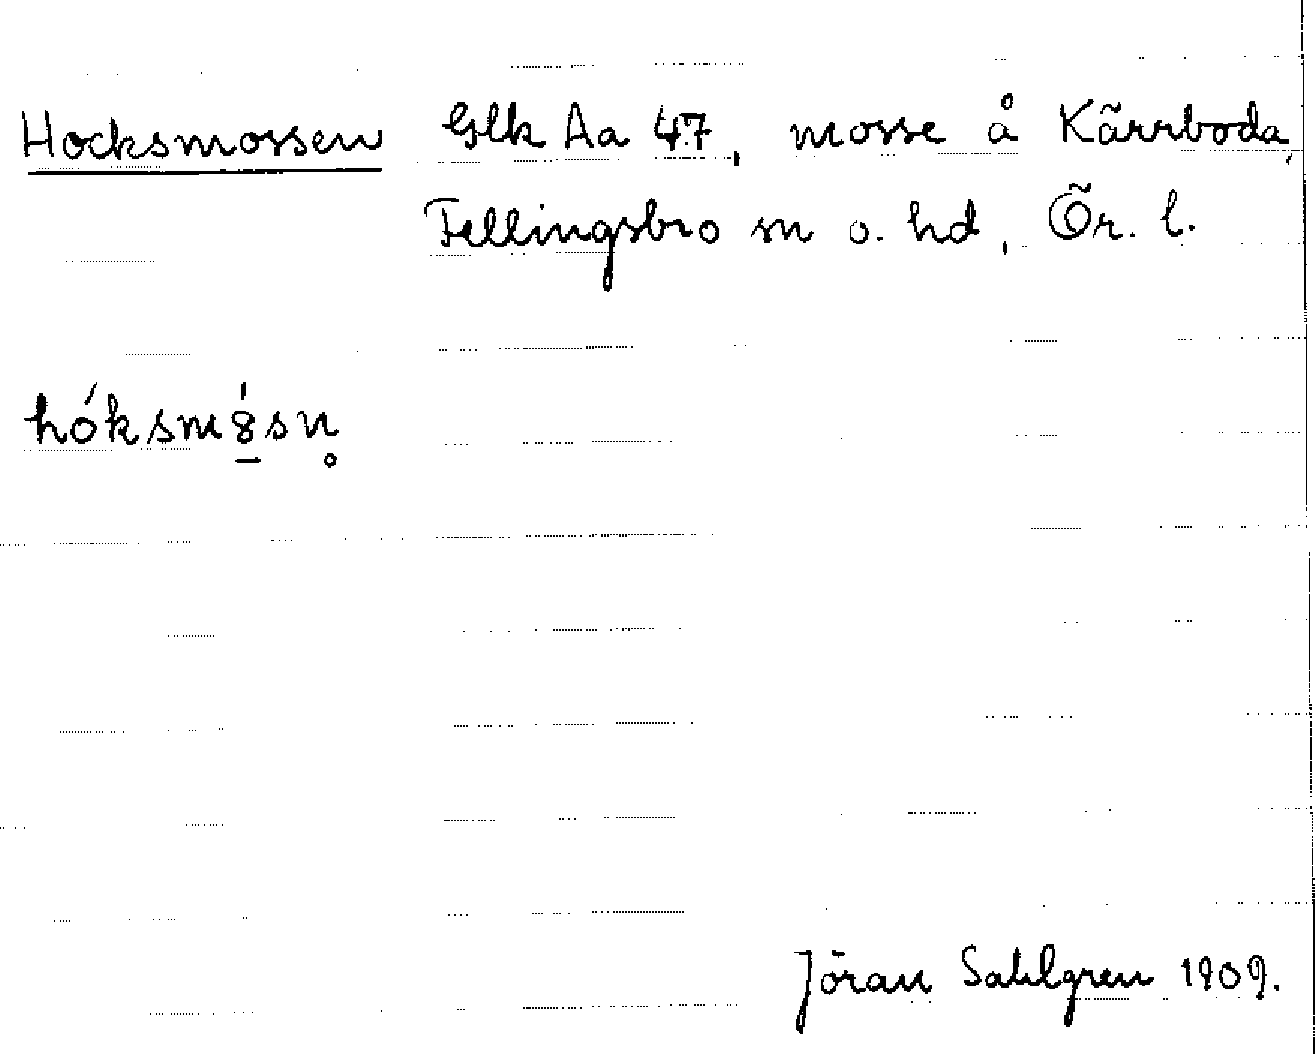 Hocksmossen Glk Aa 47, mosse å Kärrboda,
Fellingsbro sn o. hd, Ör. l.
hóksmó̱sn̥
Jöran Sahlgren 1909.